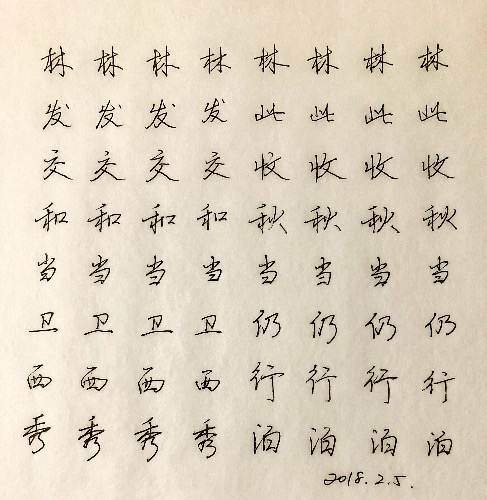 林林林林林林林林
发发发发此此此此
交交交交收收收收
和和和和秋秋秋秋
当当当当当当当当
卫卫卫卫仍仍仍仍
西西西西行行行行
秀秀秀秀泊泊泊泊
2018.2.5.